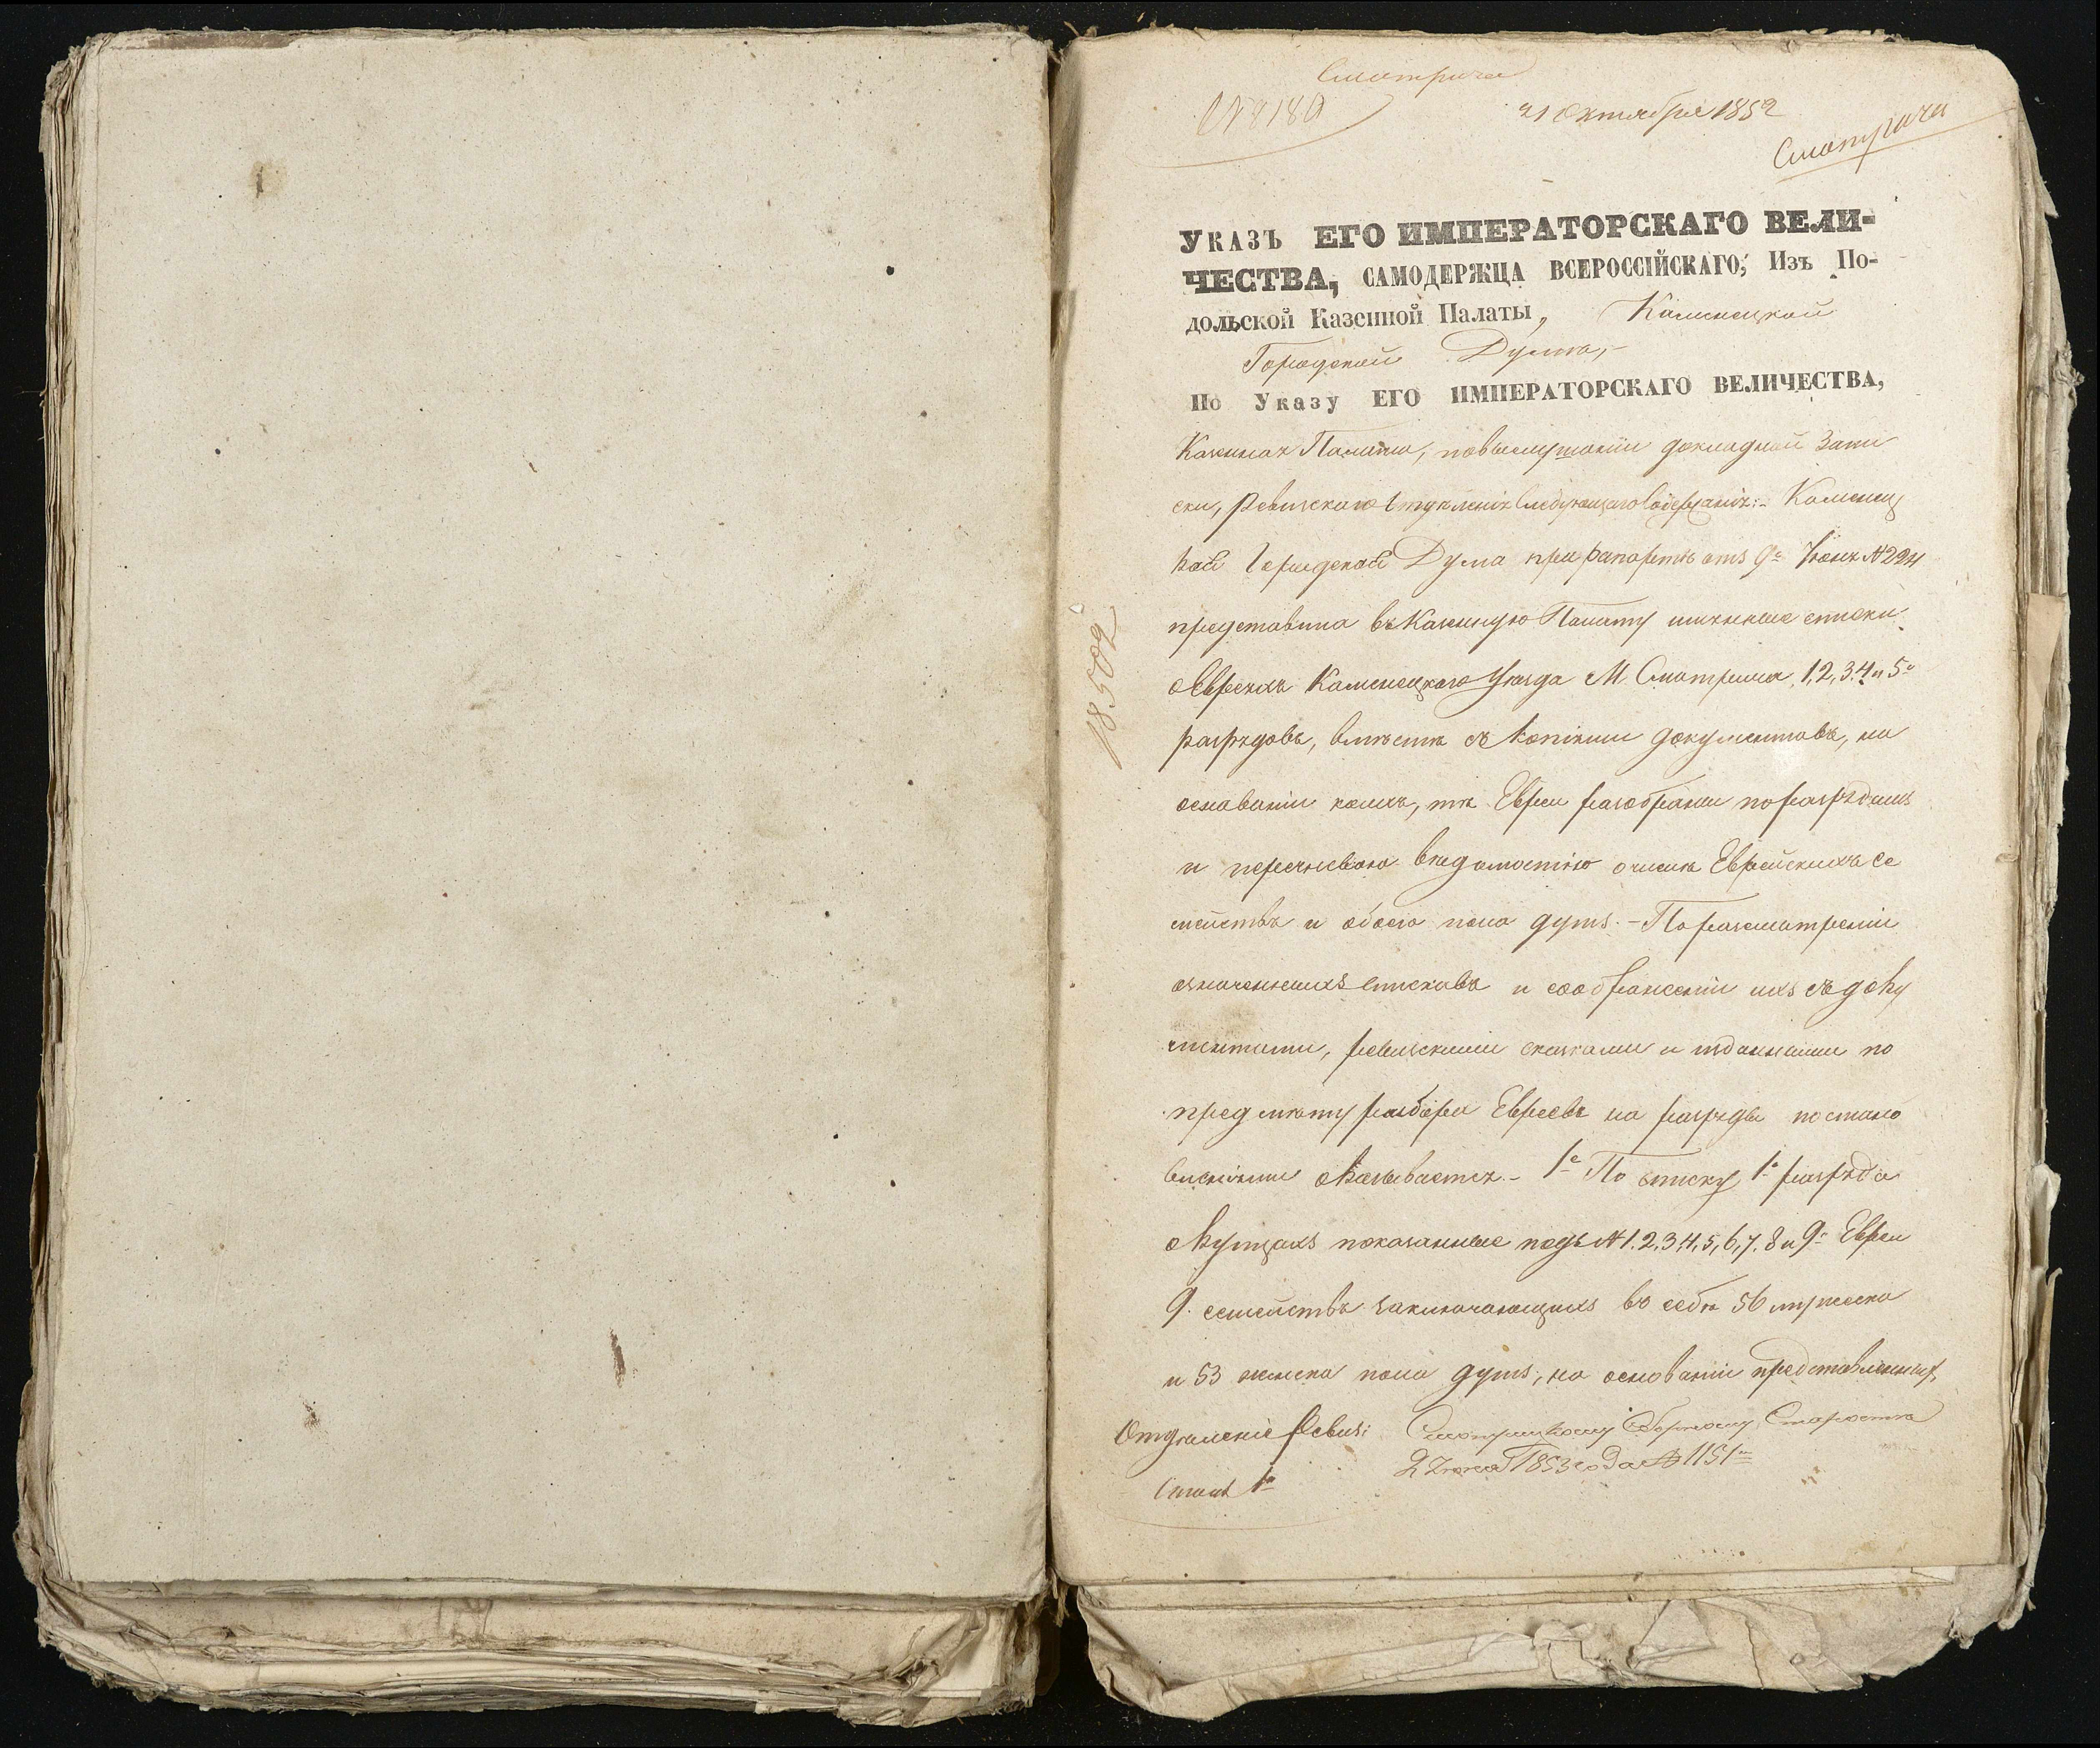 Смотрича
№ 8180
21 Октября 1852
Смотрича
Указъ ЕГО ИМПЕРАТОРСКАГО ВЕЛИ-
ЧЕСТВА, САМОДЕРЖЦА ВСЕРОССІЙСКАГО, Изъ По-
дольской Казенной Палаты, Каменецкой
Городской Думѣ,-
По Указу ЕГО ИМПЕРАТОРСКАГО ВЕЛИЧЕСТВА,
Казенная Палата, повыслушаніи докладной Запи
ски, Ревизскаго Отдѣленія слѣдующаго содержанія:- Каменец
кая Городская Дума при рапортѣ отъ 9го Іюня № 224
представила въ Казенную Палату имянные списки
о Евреяхъ Каменецкаго Уѣзда М. Смотрича 1, 2, 3, 4 и 5го
разрядовъ, вмѣстѣ съ копіями документовъ, на
основаніи коихъ, тѣ Евреи разобраны по разрядамъ
и перечневою вѣдомостію о числѣ Еврейскихъ се
мействъ и обоего пола душъ.- По разсмотреніи
означенныхъ списковъ и соображеніи ихъ съ доку
ментами, ревизскими сказками и изданными по
предмету разбора Евреевъ на разряды постано
вленіями оказывается.- 1е По списку 1го разряда
о Купцахъ показанные подъ № 1, 2, 3, 4, 5, 6, 7, 8 и 9м Евреи
9. семействъ заключающихъ въ себѣ 56 мужеска
и 53 женска пола душъ, на основаніи представленныхъ
18502
Отдѣленіе Ревиз:
Столъ 1й
Смотрицкому Сборному Старостѣ
2 Іюня 1853 года № 1151